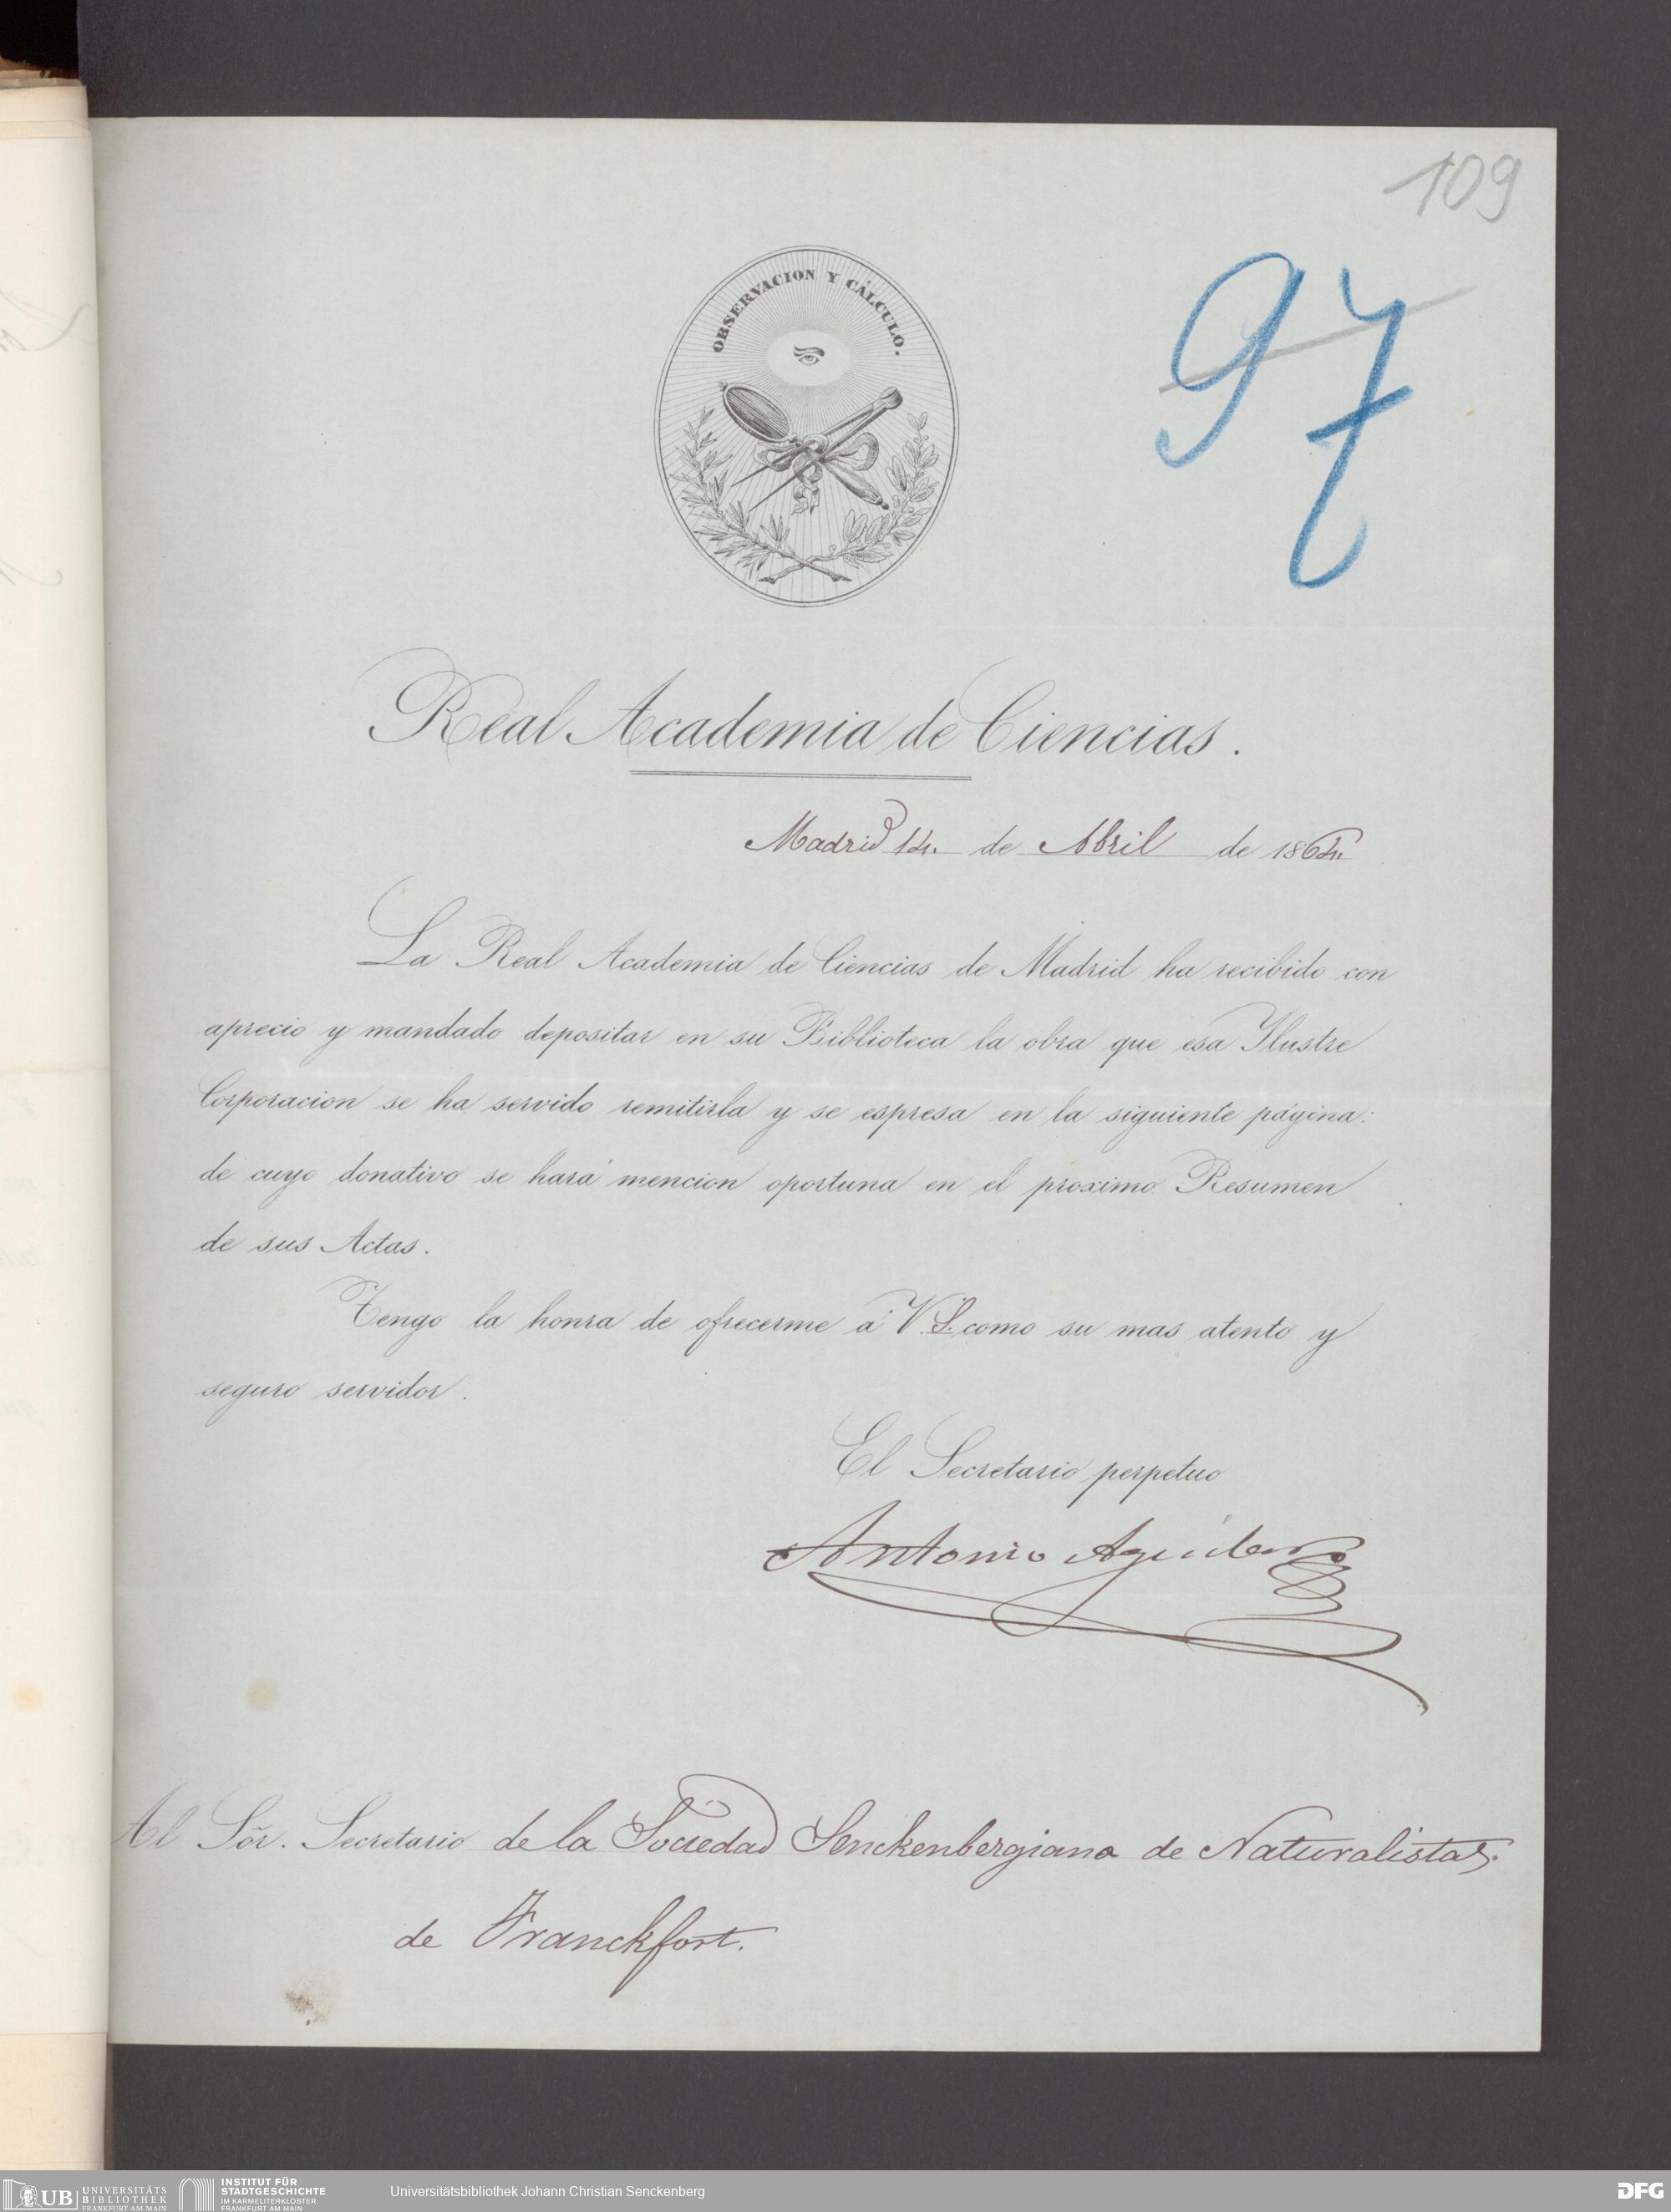 109
97
OBSERVACION Y CÁLCULO.
Real Academia de Ciencias.
Madrid 14. de Abril de 1864.
La Real Academia de Ciencias de Madrid ha recibido con
aprecio y mandado depositar en su Biblioteca la obra que esa Ylustre
Corporacion se ha servido remitirla y se espresa en la siguiente página:
de cuyo donativo se hará mencion oportuna en el proximo Resumen
de sus Actas.
Tengo la honra de ofrecerme á V.S. como su mas atento y
seguro servidor.
El Secretario perpetuo
Antonio Aguilar
Al Sõr. Secretario de la Sociedad Senckenbergiana de Naturalistas.
de Franckfort.
UB UNIVERSITÄTS
BIBLIOTHEK
FRANKFURT AM MAIN
INSTITUT FÜR
STADTGESCHICHTE
IM KARMELITERKLOSTER
FRANKFURT AM MAIN
Universitätsbibliothek Johann Christian Senckenberg
DFG